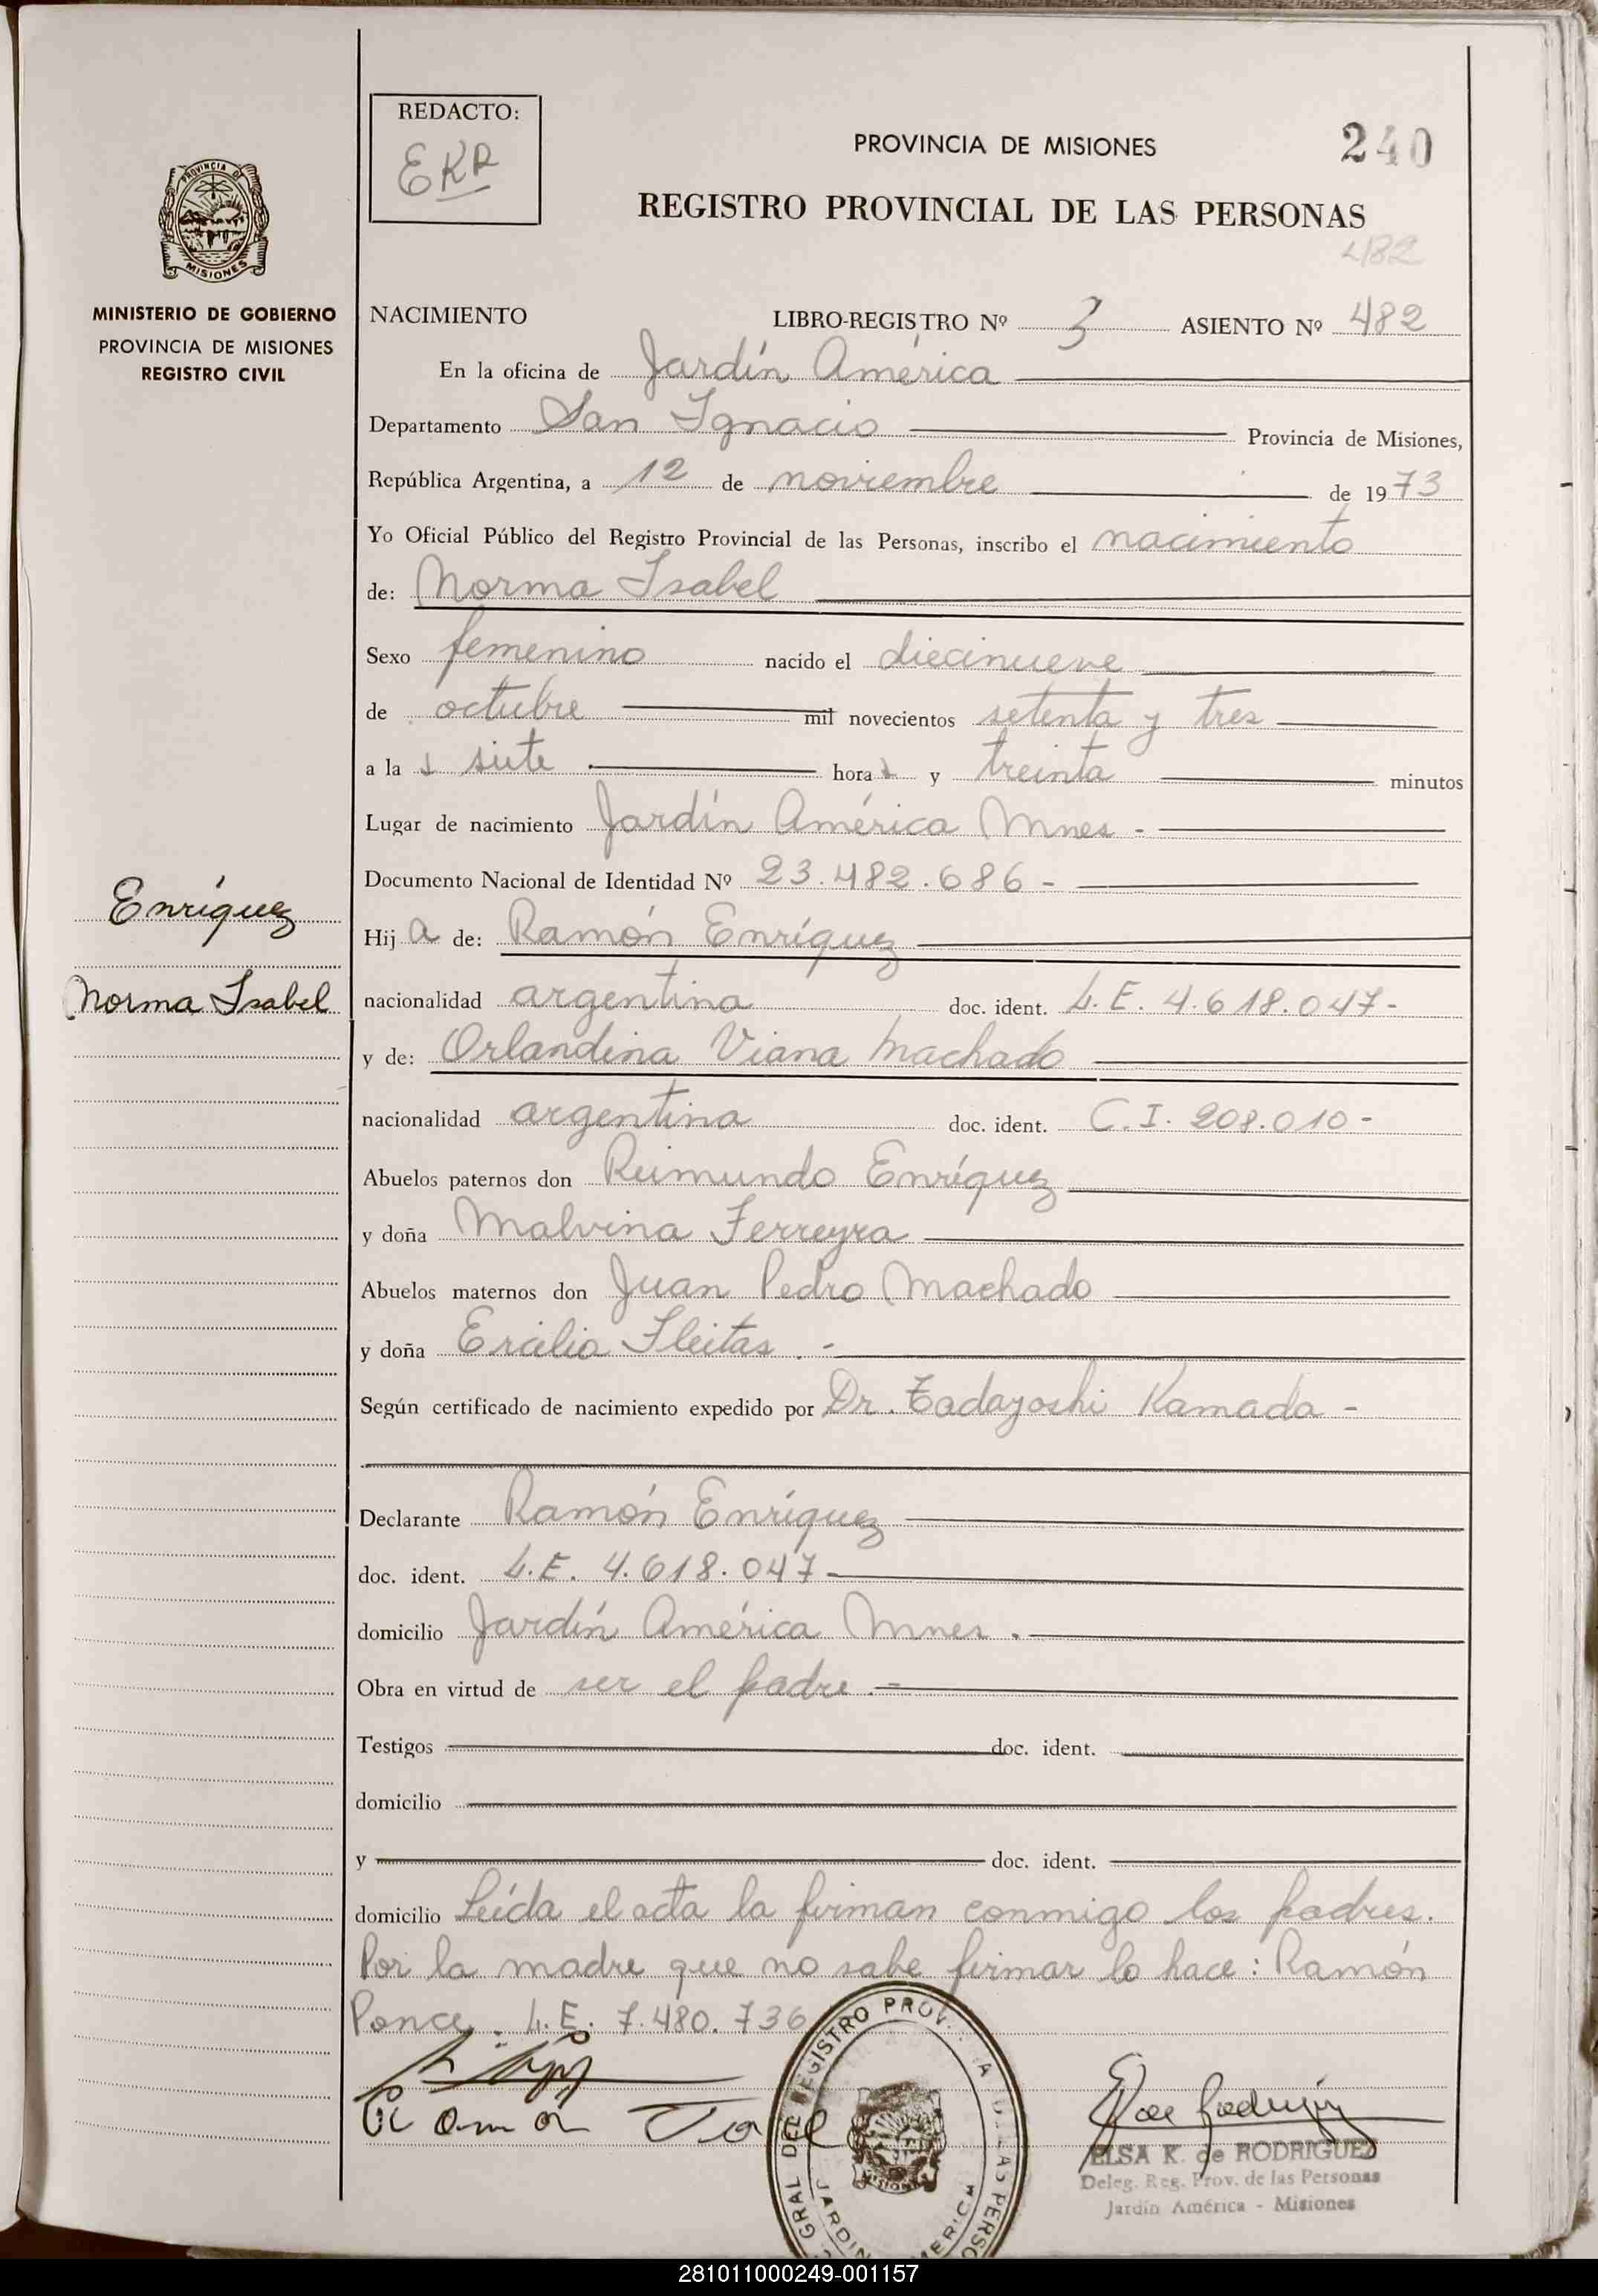 REDACTO:
EKR
PROVINCIA DE MISIONES
240
REGISTRO PROVINCIAL DE LAS PERSONAS
482
PROVINCIA D
MISIONES
MINISTERIO DE GOBIERNO
PROVINCIA DE MISIONES
REGISTRO CIVIL
NACIMIENTO LIBRO-REGISTRO Nº 3 ASIENTO Nº 482
En la oficina de Jardín América
Departamento San Ignacio Provincia de Misiones,
República Argentina, a 12 de noviembre de 1973
Yo Oficial Público del Registro Provincial de las Personas, inscribo el nacimiento
de: Norma Isabel
Sexo femenino nacido el diecinueve
de octubre mil novecientos setenta y tres
a la s siete hora s y treinta minutos
Lugar de nacimiento Jardín América Mnes -
Documento Nacional de Identidad Nº 23.482.686 -
Enríquez
Hij a de: Ramón Enríquez
Norma Isabel
nacionalidad argentina doc. ident. L.E. 4.618.047-
y de: Orlandina Viana Machado
nacionalidad argentina doc. ident. C.I. 208.010-
Abuelos paternos don Reimundo Enríquez
y doña Malvina Ferreyra
Abuelos maternos don Juan Pedro Machado
y doña Ercilia Fleitas. -
Según certificado de nacimiento expedido por Dr. Tadayoshi Kamada -
Declarante Ramón Enríquez
doc. ident. L.E. 4.618.047-
domicilio Jardín América Mnes.
Obra en virtud de ser el padre.-
Testigos doc. ident.
domicilio
y doc. ident.
domicilio Leída el acta la firman conmigo los padres.
Por la madre que no sabe firmar lo hace: Ramón
Ponce. L.E. 7.480.736
ELSA K. de RODRIGUEZ
Deleg. Reg. Prov. de las Personas
Jardín América - Misiones
281011000249-001157